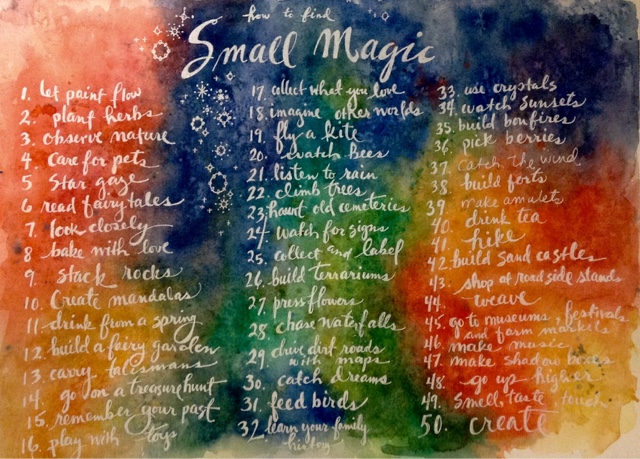 how to find
Small Magic
1. let paint flow
2. plant herbs
3. observe nature
4. care for pets
5 star gaze
6 read fairytales
7. look closely
8 bake with love
9. stack rocks
10. Create mandalas
11 drink from a spring
12. build a fairy garden
13. carry talismans
14. go on a treasure hunt
15. remember your past
16. play with toys
17. collect what you love
18. imagine other worlds
19. fly a kite
20. watch bees
21. listen to rain
22. climb trees
23. haunt old cemeteries
24. watch for signs
25. collect and label
26. build terrariums
27. press flowers
28. chase waterfalls
29. drive dirt roads
with maps
30. catch dreams
31. feed birds
32 learn your family
history
33. use crystals
34. watch sunsets
35. build bonfires
36. pick berries
37. catch the wind.
38. build forts
39. make amulets
40. drink tea
41. hike
42. build sand castles
43. shop at roadside stands
44. weave
45. go to museums, festivals
and farm markets
46. make music
47. make shadow boxes
48. go up higher
49. Smell, taste touch
50. create